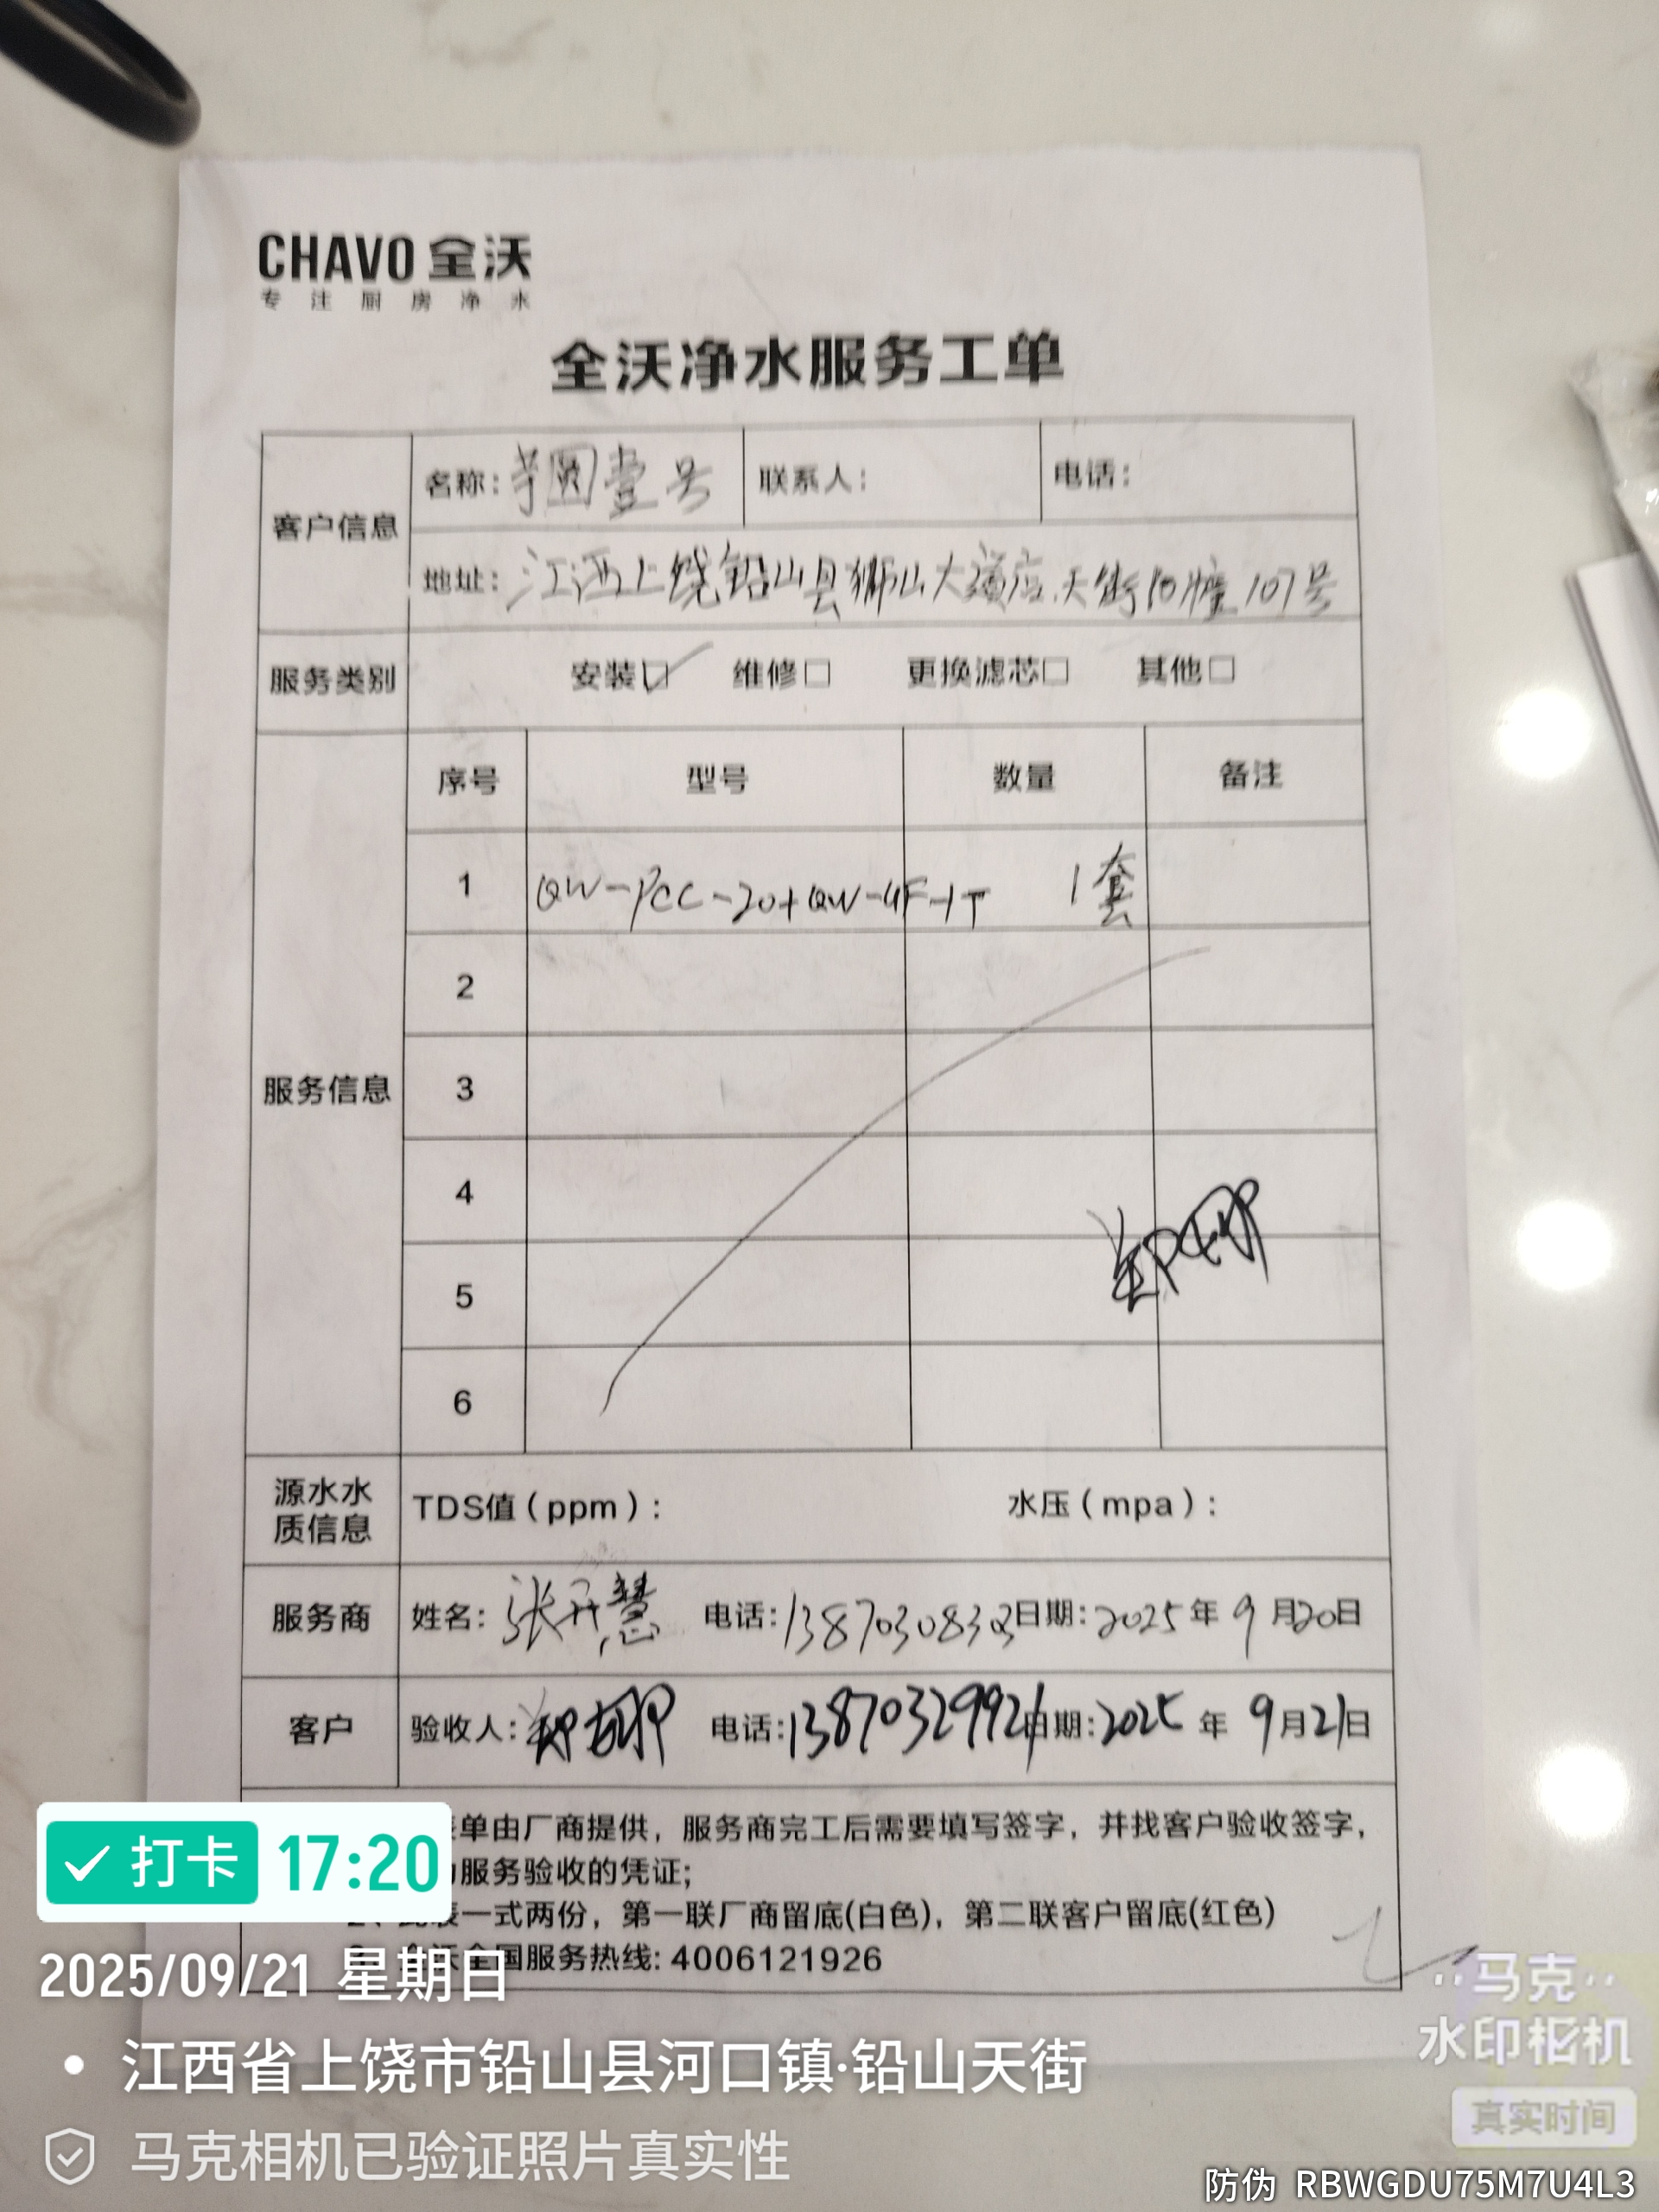 CHAVO 全沃
专注厨房净水
全沃净水服务工单
客户信息
名称: 芋圆壹号 联系人: 电话:
地址: 江西上饶铅山县狮山大道店.天街10幢107号
服务类别 安装☑ 维修□ 更换滤芯□ 其他□
服务信息
序号 型号 数量 备注
1 QW-PCC-20+QW-UF-1T 1套
2
3
4
5
6
源水水质信息 TDS值(ppm): 水压(mpa):
服务商 姓名: 张开慧 电话: 13870308303 日期: 2025年9月20日
客户 验收人: 电话: 13870329921 日期: 2025年9月21日
表单由厂商提供，服务商完工后需要填写签字，并找客户验收签字，
服务验收的凭证;
表一式两份，第一联厂商留底(白色)，第二联客户留底(红色)
全沃全国服务热线: 4006121926
打卡 17:20
2025/09/21 星期日
江西省上饶市铅山县河口镇·铅山天街
马克相机已验证照片真实性
马克
水印相机
真实时间
防伪 RBWGDU75M7U4L3